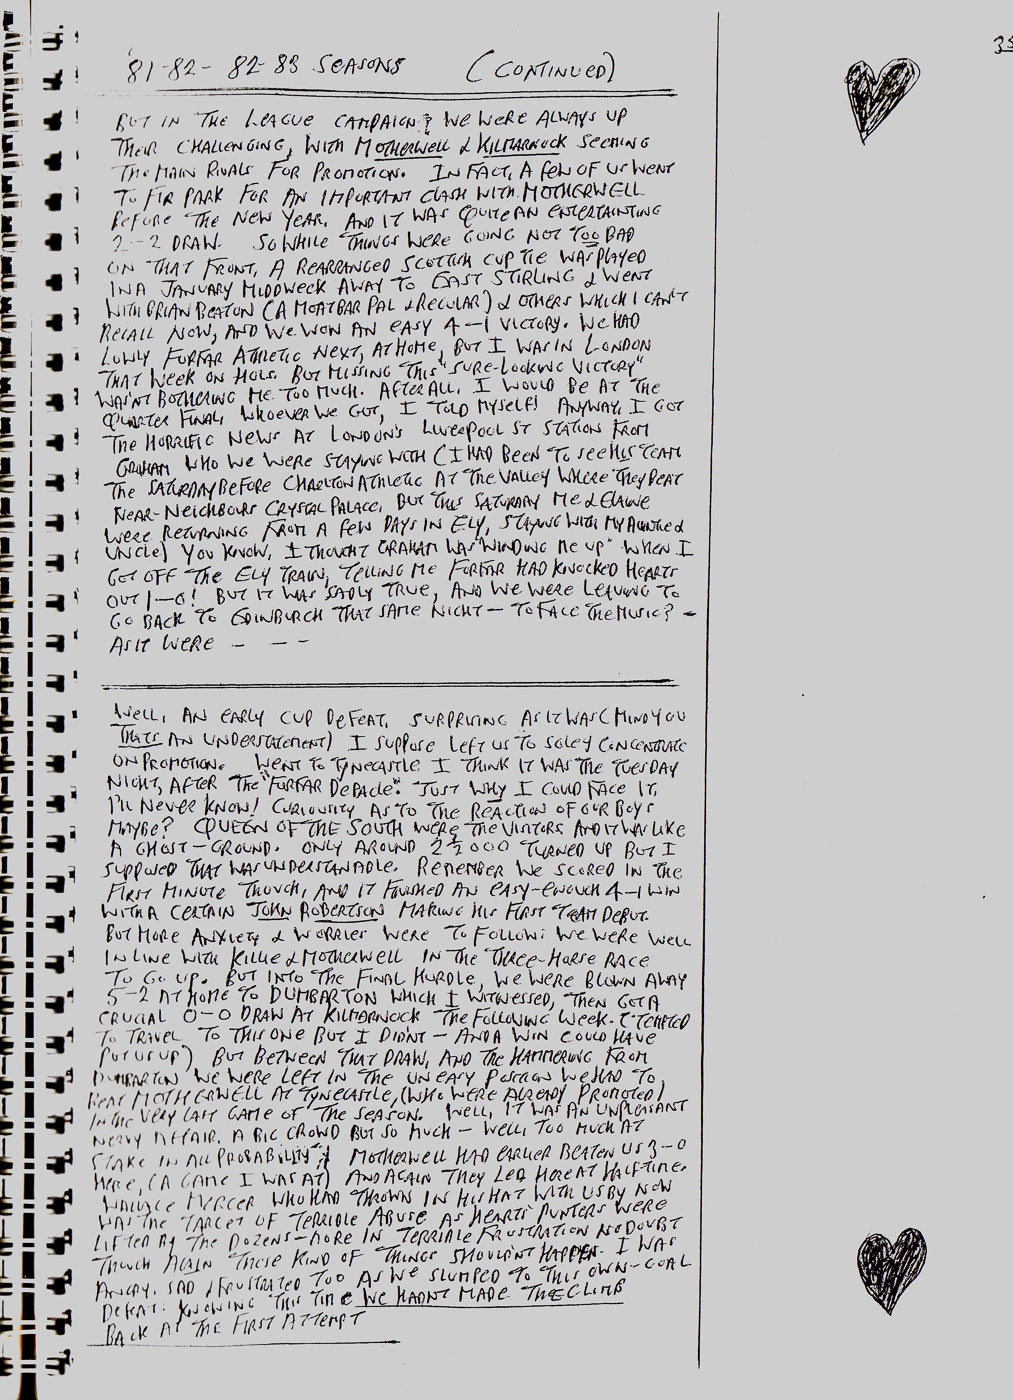 35
'81-82- 82-83 SEASONS (CONTINUED)
BUT IN THE LEAGUE CAMPAIGN, WE WERE ALWAYS UP
THEIR CHALLENGING, WITH MOTHERWELL & KILMARNOCK SEEMING
THE MAIN RIVALS FOR PROMOTION. IN FACT, A FEW OF US WENT
TO FIR PARK FOR AN IMPORTANT CLASH WITH MOTHERWELL
BEFORE THE NEW YEAR, AND IT WAS QUITE AN ENTERTAINTING
2-2 DRAW. SO WHILE THINGS WERE GOING NOT TOO BAD
ON THAT FRONT, A REARRANGED SCOTTISH CUP TIE WAS PLAYED
IN A JANUARY MIDDWEEK AWAY TO EAST STIRLING & WENT
WITH BRIAN BEATON (A MOATBAR PAL & REGULAR) & OTHERS WHICH I CAN'T
RECALL NOW, AND WE WON AN EASY 4-1 VICTORY. WE HAD
LOWLY FORFAR ATHLETIC NEXT, AT HOME, BUT I WAS IN LONDON
THAT WEEK ON HOLS. BUT MISSING THIS "SURE-LOOKING VICTORY"
WASN'T BOTHERING ME TOO MUCH. AFTER ALL, I WOULD BE AT THE
QUARTER FINAL, WHOEVER WE GOT, I TOLD MYSELF! ANYWAY, I GOT
THE HORRIFIC NEWS AT LONDON'S LIVERPOOL ST STATION FROM
GRAHAM WHO WE WERE STAYING WITH (I HAD BEEN TO SEE HIS TEAM
THE SATURDAY BEFORE CHARLTON ATHLETIC AT THE VALLEY WHERE THEY BEAT
NEAR-NEIGHBOURS CRYSTAL PALACE, BUT THIS SATURDAY ME & ELAINE
WERE RETURNING FROM A FEW DAYS IN ELY, STAYING WITH MY AUNTIE &
UNCLE) YOU KNOW, I THOUGHT GRAHAM WAS "WINDING ME UP" WHEN I
GOT OFF THE ELY TRAIN, TELLING ME FORFAR HAD KNOCKED HEARTS
OUT 1-0! BUT IT WAS SADLY TRUE, AND WE WERE LEAVING TO
GO BACK TO EDINBURGH THAT SAME NIGHT - TO FACE THE MUSIC? -
AS IT WERE - - -
WELL, AN EARLY CUP DEFEAT, SURPRISING AS IT WAS (MIND YOU
THATS AN UNDERSTATEMENT) I SUPPOSE LEFT US TO SOLEY CONCENTRATE
ON PROMOTION. WENT TO TYNECASTLE I THINK IT WAS THE TUESDAY
NIGHT, AFTER THE "FORFAR DEBACLE". JUST WHY I COULD FACE IT,
I'LL NEVER KNOW! CURIOUSITY AS TO THE REACTION OF OUR BOYS
MAYBE? QUEEN OF THE SOUTH WERE THE VISITORS AND IT WAS LIKE
A GHOST-GROUND. ONLY AROUND 2½000 TURNED UP BUT I
SUPPOSED THAT WAS UNDERSTANABLE. REMEMBER WE SCORED IN THE
FIRST MINUTE THOUGH, AND IT FINISHED AN EASY-ENOUGH 4-1 WIN
WITH A CERTAIN JOHN ROBERTSON MAKING HIS FIRST TEAM DEBUT.
BUT MORE ANXIETY & WORRIES WERE TO FOLLOW: WE WERE WELL
IN LINE WITH KILLIE & MOTHERWELL IN THE THREE-HORSE RACE
TO GO UP. BUT INTO THE FINAL HURDLE, WE WERE BLOWN AWAY
5-2 AT HOME TO DUMBARTON WHICH I WITNESSED, THEN GOT A
CRUCIAL 0-0 DRAW AT KILMARNOCK THE FOLLOWING WEEK. (TEMPTED
TO TRAVEL TO THIS ONE BUT I DIDN'T - AND A WIN COULD HAVE
PUT US UP) BUT BETWEEN THAT DRAW, AND THE HAMMERING FROM
DUMBARTON WE WERE LEFT IN THE UNEASY POSITION WE HAD TO
BEAT MOTHERWELL AT TYNECASTLE, (WHO WERE ALREADY PROMOTED)
IN THE VERY LAST GAME OF THE SEASON. WELL, IT WAS AN UNPLEASANT
NERVY AFFAIR. A BIG CROWD BUT SO MUCH - WELL, TOO MUCH AT
STAKE IN ALL PROBABILITY! MOTHERWELL HAD EARLIER BEATEN US 3-0
HERE, (A GAME I WAS AT) AND AGAIN THEY LED HERE AT HALF-TIME.
WALLACE MERCER WHO HAD THROWN IN HIS HAT WITH US BY NOW
WAS THE TARGET OF TERRIBLE ABUSE AS HEARTS PUNTERS WERE
LIFTED BY THE DOZENS-MORE IN TERRIBLE FRUSTRATION NO DOUBT
THOUGH AGAIN THOSE KIND OF THINGS SHOULDN'T HAPPEN. I WAS
ANGRY, SAD & FRUSTRATED TOO AS WE SLUMPED TO THIS OWN-GOAL
DEFEAT: KNOWING THIS TIME WE HADN'T MADE THE CLIMB
BACK AT THE FIRST ATTEMPT